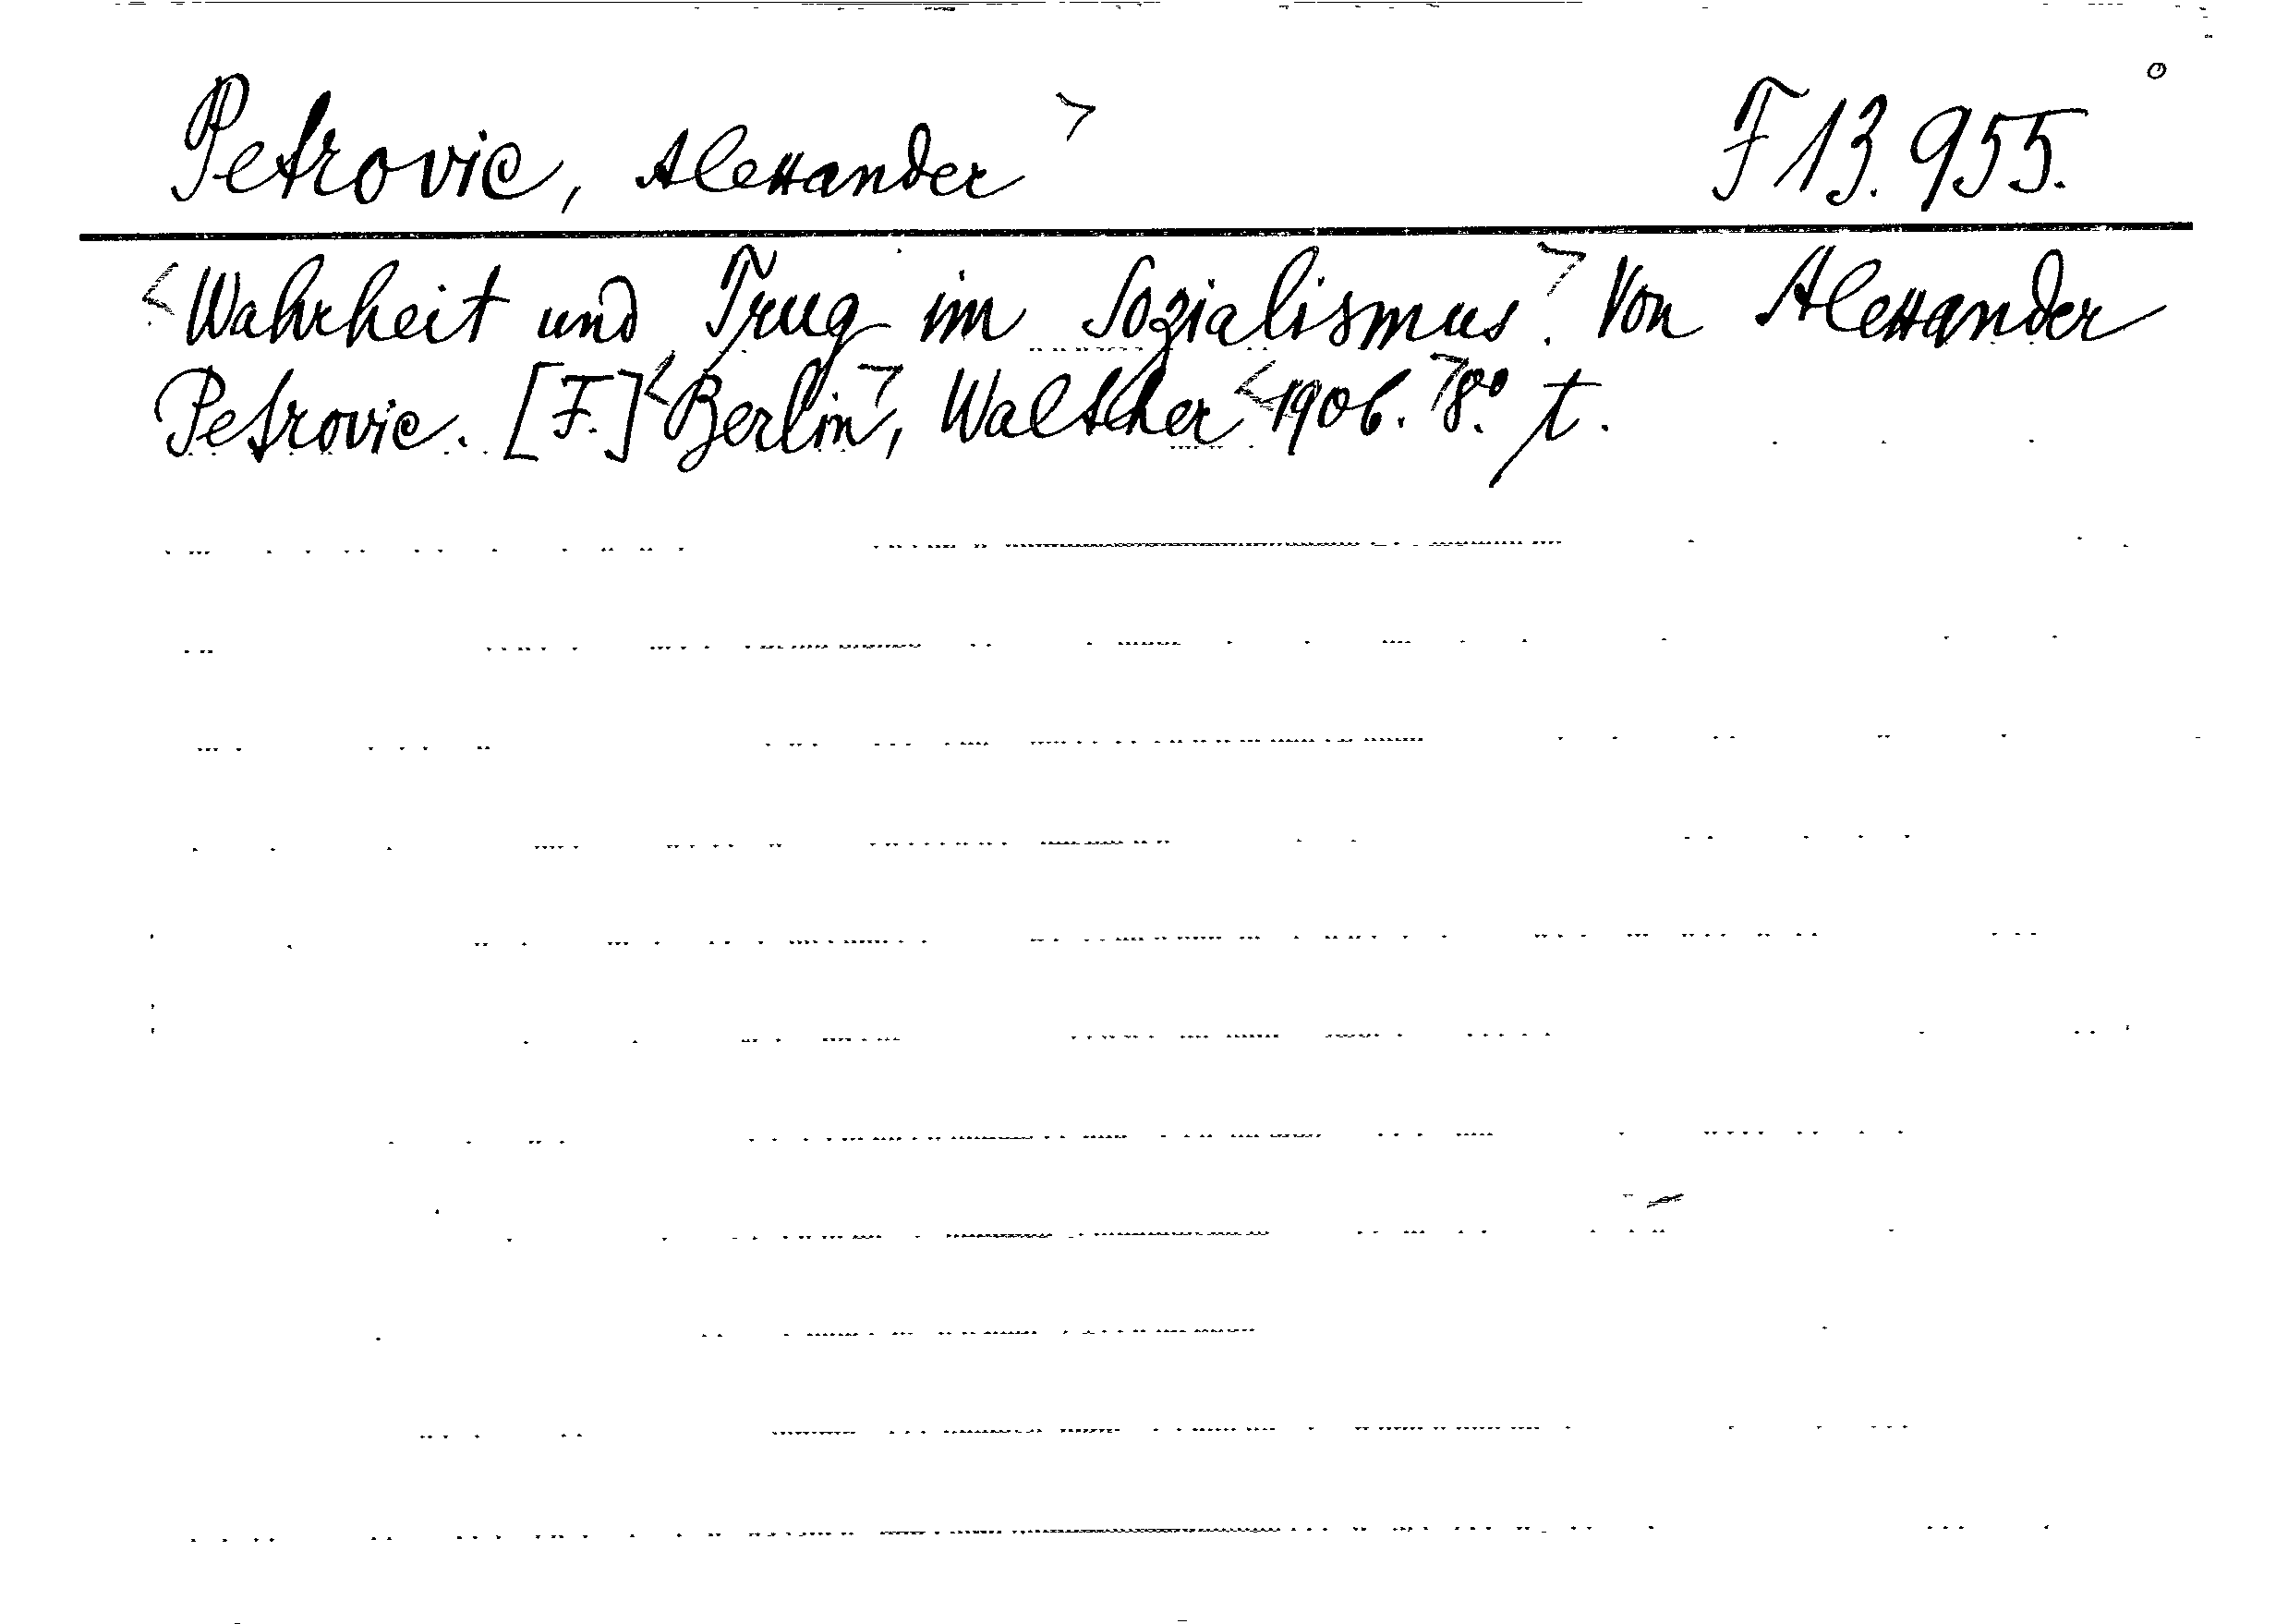 Petrovic, Alexander> F 13.955.
<Wahrheit und Trug im Sozialismus.> Von Alexander
Petrovic. [F.] <Berlin>, Walther <1906.> 8.° t.